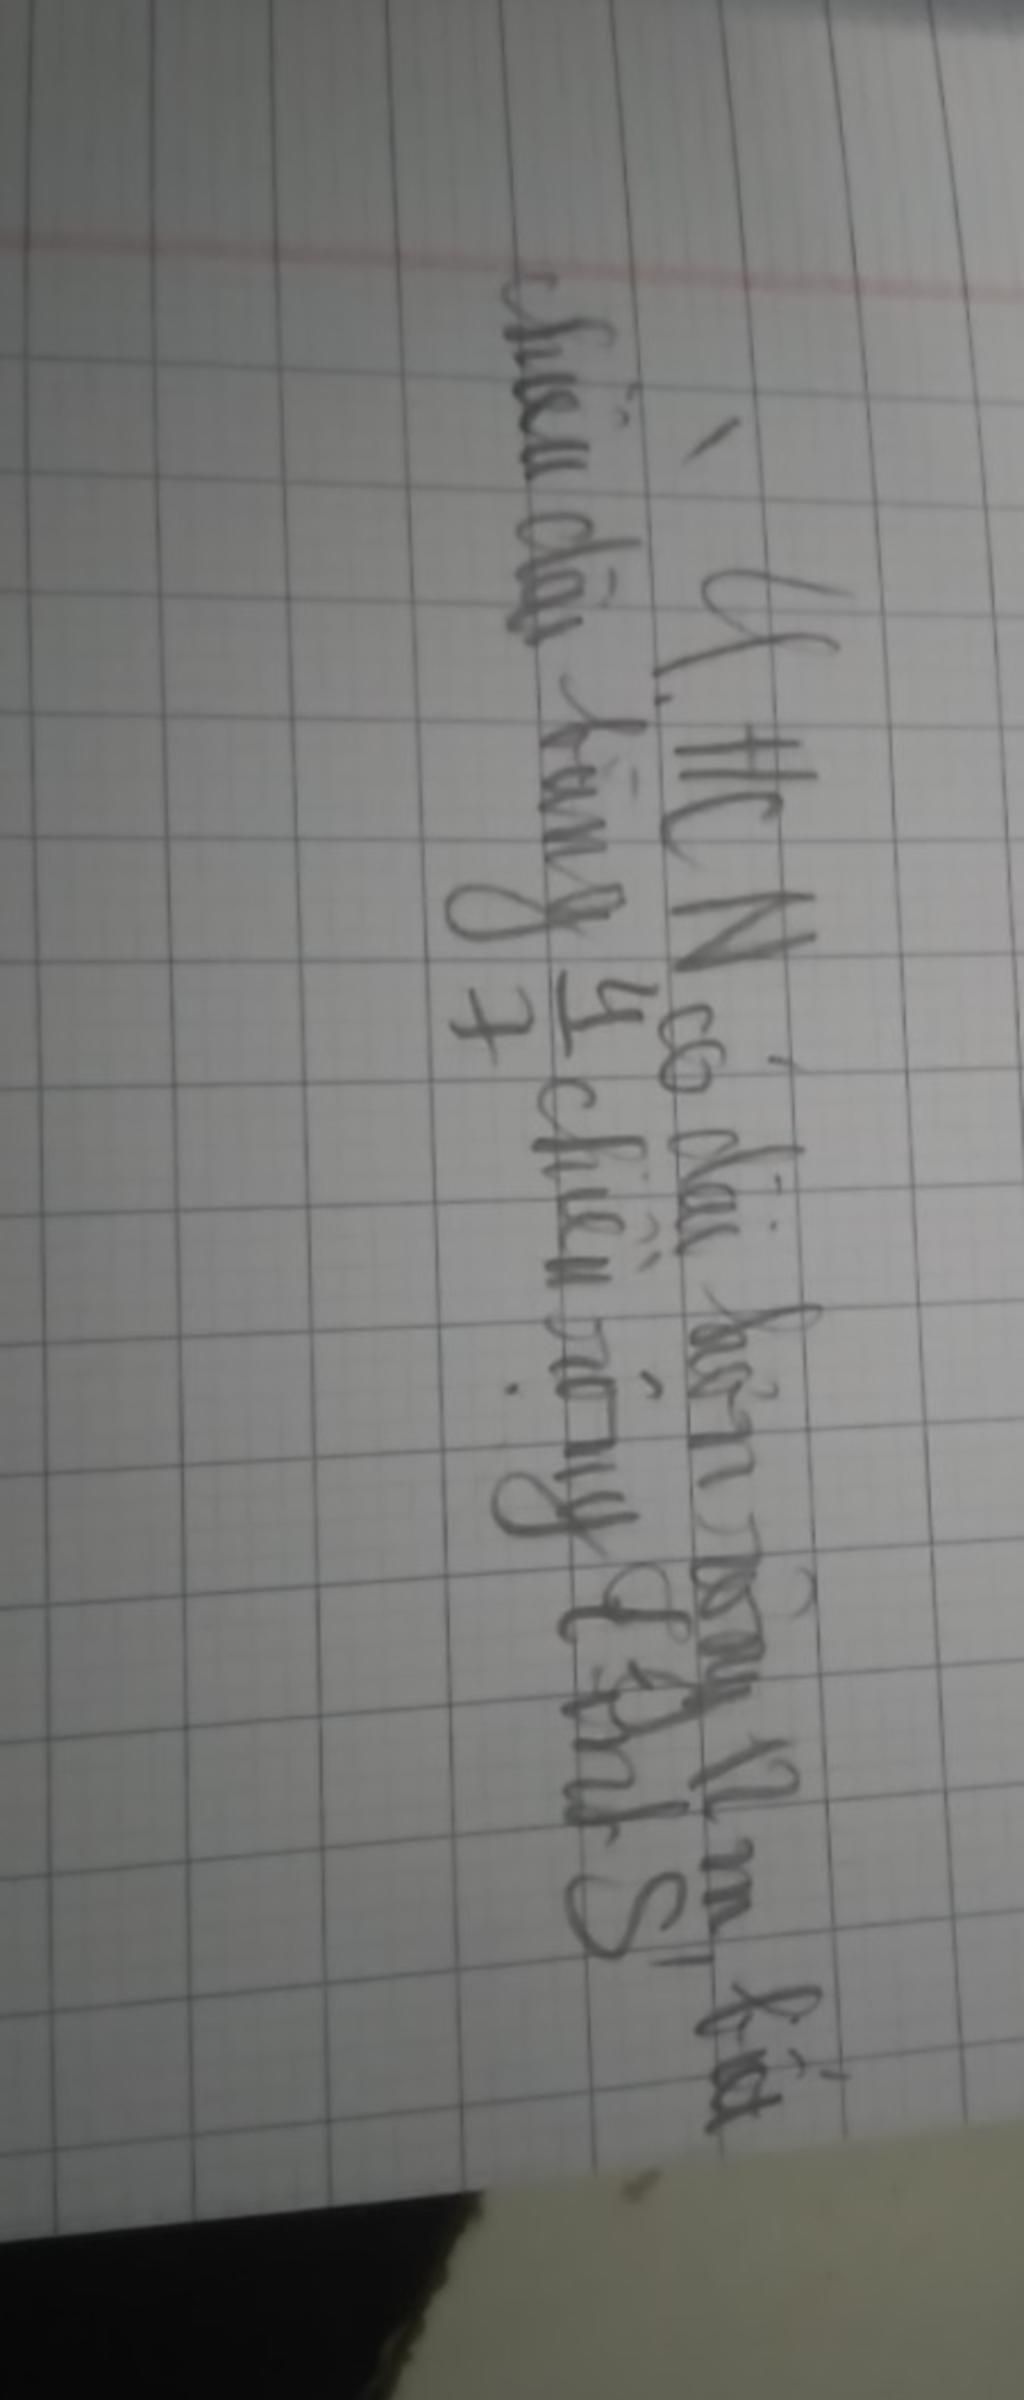 4, HCN có dài hơn rộng 12 m, biết
chiều dài bằng 4/7 chiều rộng. Tính S